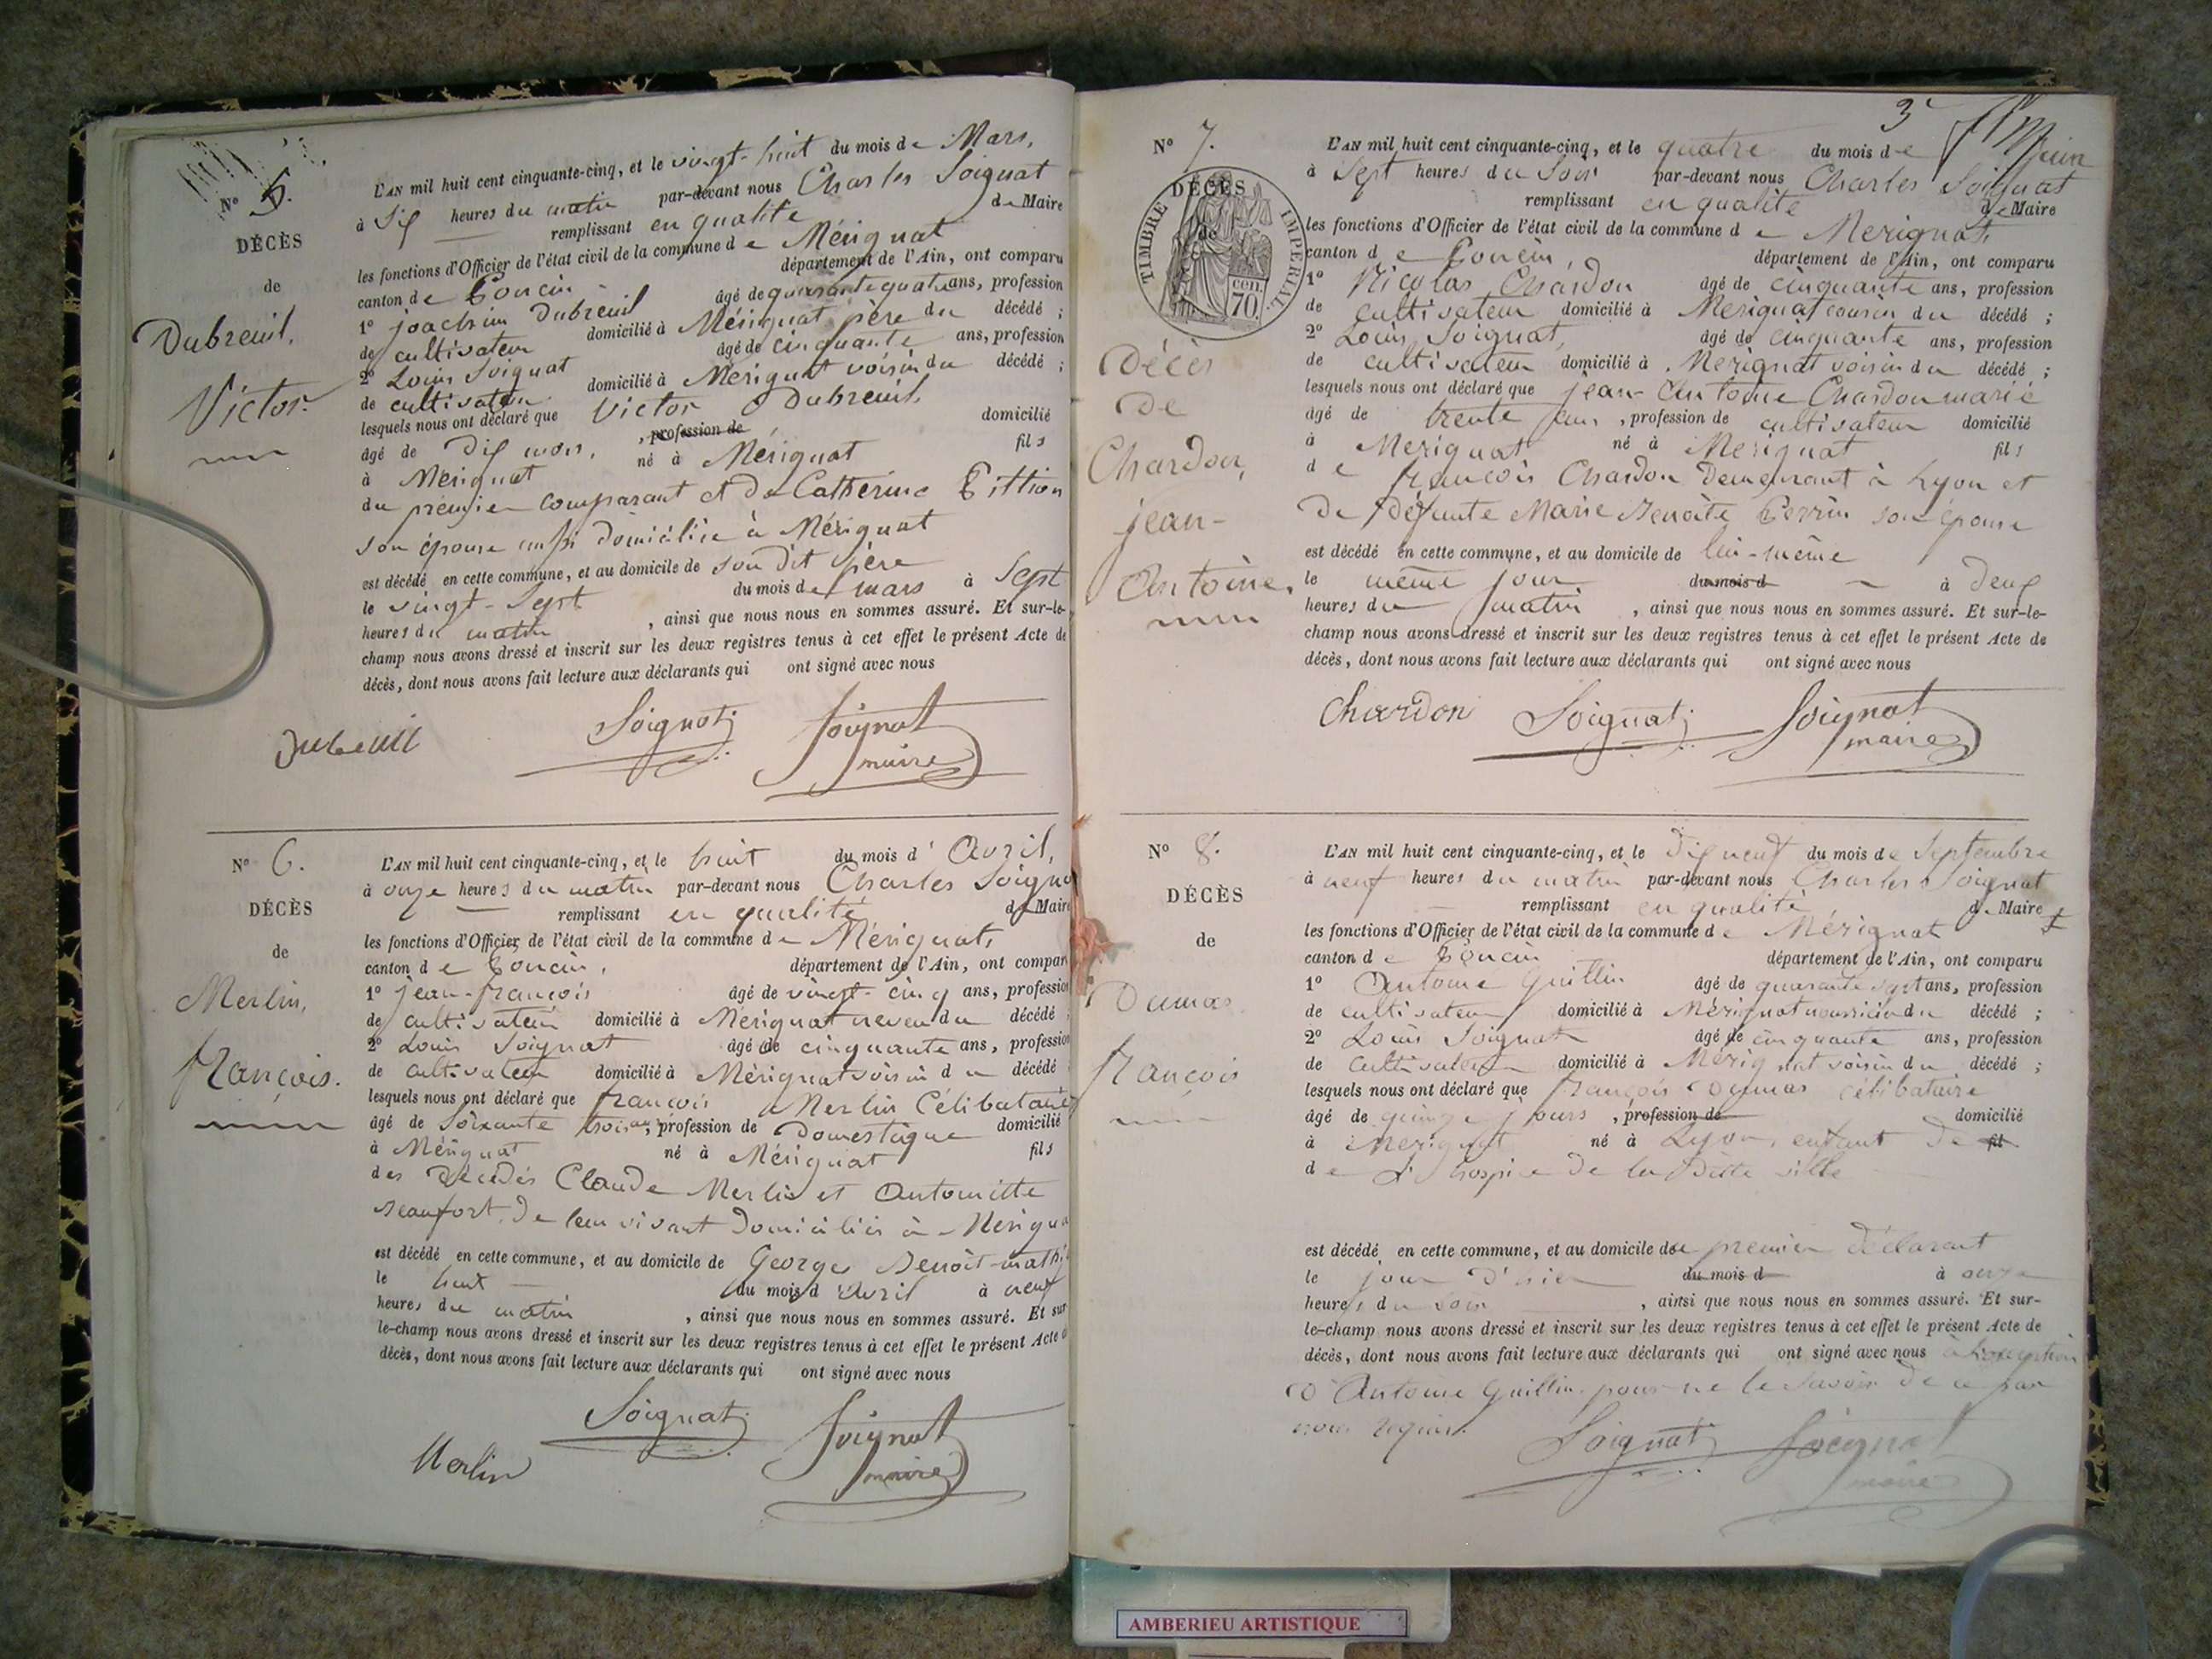 N° 5.
DÉCÈS
de
Dubreuil,
Victor.
L'AN mil huit cent cinquante-cinq, et le vingt-huit du mois de Mars,
à Six heures du matin par-devant nous Charles Soignat
remplissant en qualité de Maire
les fonctions d'Officier de l'état civil de la commune de Mérignat
canton de Poncin département de l'Ain, ont comparu
1° joachim Dubreuil âgé de quarante quatre ans, profession
de cultivateur domicilié à Mérignat père du décédé ;
2° Louis Soignat âgé de cinquante ans, profession
de cultivateur domicilié à Mérignat voisin du décédé ;
lesquels nous ont déclaré que Victor Dubreuil,
âgé de Dix mois, , profession de domicilié
à Mérignat né à Mérignat fils
du premier comparant et de Catherine Pittion
son épouse aussi domiciliée à Mérignat
est décédé en cette commune, et au domicile de son dit père
le vingt-sept du mois de mars à Sept
heures du matin , ainsi que nous nous en sommes assuré. Et sur-le-
champ nous avons dressé et inscrit sur les deux registres tenus à cet effet le présent Acte de
décès, dont nous avons fait lecture aux déclarants qui ont signé avec nous
Dubreuil Soignat Soignat
maire
N° 6.
DÉCÈS
de
Merlin,
françois.
L'AN mil huit cent cinquante-cinq, et le huit du mois d' Avril,
à onze heures du matin par-devant nous Charles Soigna
remplissant en qualité de Maire
les fonctions d'Officier de l'état civil de la commune de Mérignat,
canton de Poncin, département de l'Ain, ont compar
1° jean-françois âgé de vingt-cinq ans, profession
de cultivateur domicilié à Mérignat neveu du décédé ;
2° Louis Soignat âgé de cinquante ans, profession
de cultivateur domicilié à Mérignat voisin du décédé
lesquels nous ont déclaré que françois Merlin Célibataire
âgé de Soixante trois ans, profession de Domestique domicilié
à Mérignat né à Mérignat fils
des décédés Claude Merlin et Antoinette
Beaufort, de leur vivant domiciliés à Mérigna
est décédé en cette commune, et au domicile de George Benoît-
le huit du mois d Avril à neuf
heures du matin , ainsi que nous nous en sommes assuré. Et sur
le-champ nous avons dressé et inscrit sur les deux registres tenus à cet effet le présent Acte d
décès, dont nous avons fait lecture aux déclarants qui ont signé avec nous
Soignat Soignat
Merlin maire
3
N° 7.
DÉCÈS
de
TIMBRE IMPERIAL
70 cen.
Décès
de
Chardon,
jean-
Antoine.
L'AN mil huit cent cinquante-cinq, et le quatre du mois de Juin
à Sept heures du Soir par-devant nous Charles Soignat
remplissant en qualité de Maire
les fonctions d'Officier de l'état civil de la commune de Mérignat,
canton de Poncin, département de l'Ain, ont comparu
1° Nicolas Chardon âgé de cinquante ans, profession
de cultivateur domicilié à Mérignat cousin du décédé ;
2° Louis Soignat, âgé de cinquante ans, profession
de cultivateur domicilié à Mérignat voisin du décédé ;
lesquels nous ont déclaré que jean-Antoine Chardon marié
âgé de trente ans , profession de cultivateur domicilié
à Mérignat né à Mérignat fils
de françois Chardon demeurant à Lyon et
de défunte Marie Benoîte Perrin son épouse
est décédé en cette commune, et au domicile de lui-même
le même jour du mois d à deux
heures du matin , ainsi que nous nous en sommes assuré. Et sur-le-
champ nous avons dressé et inscrit sur les deux registres tenus à cet effet le présent Acte de
décès, dont nous avons fait lecture aux déclarants qui ont signé avec nous
Chardon Soignat Soignat
maire
N° 8.
DÉCÈS
de
Dumas
françois
L'AN mil huit cent cinquante-cinq, et le Dix neuf du mois de Septembre
à neuf heures du matin par-devant nous Charles Soignat
remplissant en qualité de Maire
les fonctions d'Officier de l'état civil de la commune de Mérignat
canton de Poncin département de l'Ain, ont comparu
1° Antoine Guillin âgé de quarante sept ans, profession
de cultivateur domicilié à Mérignat nourricier du décédé ;
2° Louis Soignat âgé de cinquante ans, profession
de cultivateur domicilié à Mérignat voisin du décédé ;
lesquels nous ont déclaré que françois Dumas célibataire
âgé de quinze jours , profession de domicilié
à Mérignat né à Lyon, enfant de fil
de L'hospice de la ditte ville
est décédé en cette commune, et au domicile du premier déclarant
le jour d'hier du mois d à onze
heures du soir , ainsi que nous nous en sommes assuré. Et sur-
le-champ nous avons dressé et inscrit sur les deux registres tenus à cet effet le présent Acte de
décès, dont nous avons fait lecture aux déclarants qui ont signé avec nous à l'exception
d'Antoine Guillin pour ne le savoir de ce par
nous requis.
Soignat Soignat
maire
AMBERIEU ARTISTIQUE